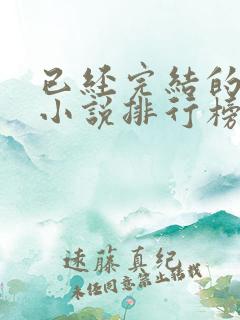 已經完結的
小說排行榜
遠藤真紀
未经同意禁止转载